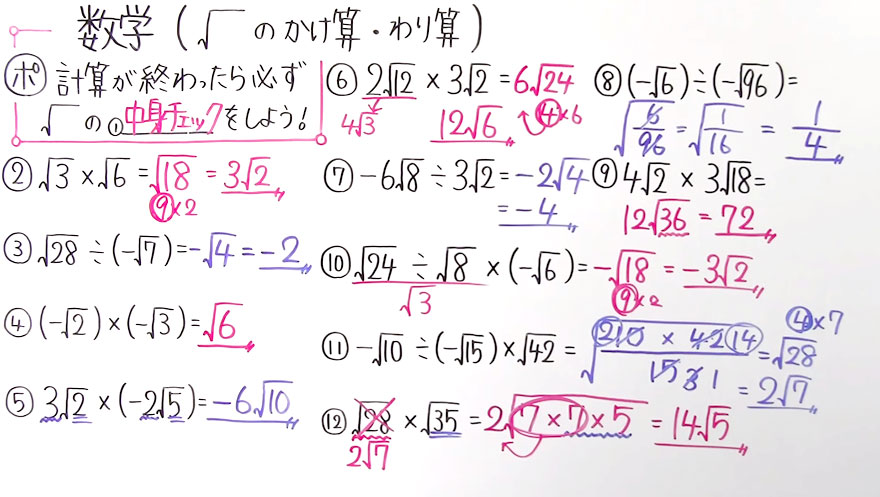 数学 (√ のかけ算・わり算)
ポ 計算が終わったら必ず
√ の①中身チェックをしよう!
② √3 × √6 = √18 = 3√2
⑨×2
③ √28 ÷ (-√7) = -√4 = -2
④ (-√2) × (-√3) = √6
⑤ 3√2 × (-2√5) = -6√10
⑥ 2√12 × 3√2 = 6√24
4√3 12√6 ④×6
⑦ -6√8 ÷ 3√2 = -2√4
= -4
⑧ (-√6) ÷ (-√96) =
√6/96 = √1/16 = 1/4
⑨ 4√2 × 3√18 =
12√36 = 72
⑩ √24 ÷ √8 × (-√6) = -√18 = -3√2
√3 ⑨×2
⑪ -√10 ÷ (-√15) × √42 = √(2 10 × 42 14)/(15 3 1) = √28
④×7
= 2√7
⑫ √28 × √35 = 2√7×7×5 = 14√5
2√7